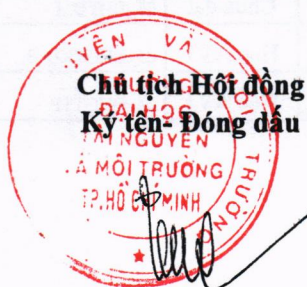 Chủ tịch Hội đồng
Ký tên- Đóng dấu
TRƯỜNG
ĐẠI HỌC
TÀI NGUYÊN
VÀ MÔI TRƯỜNG
TP.HỒ CHÍ MINH